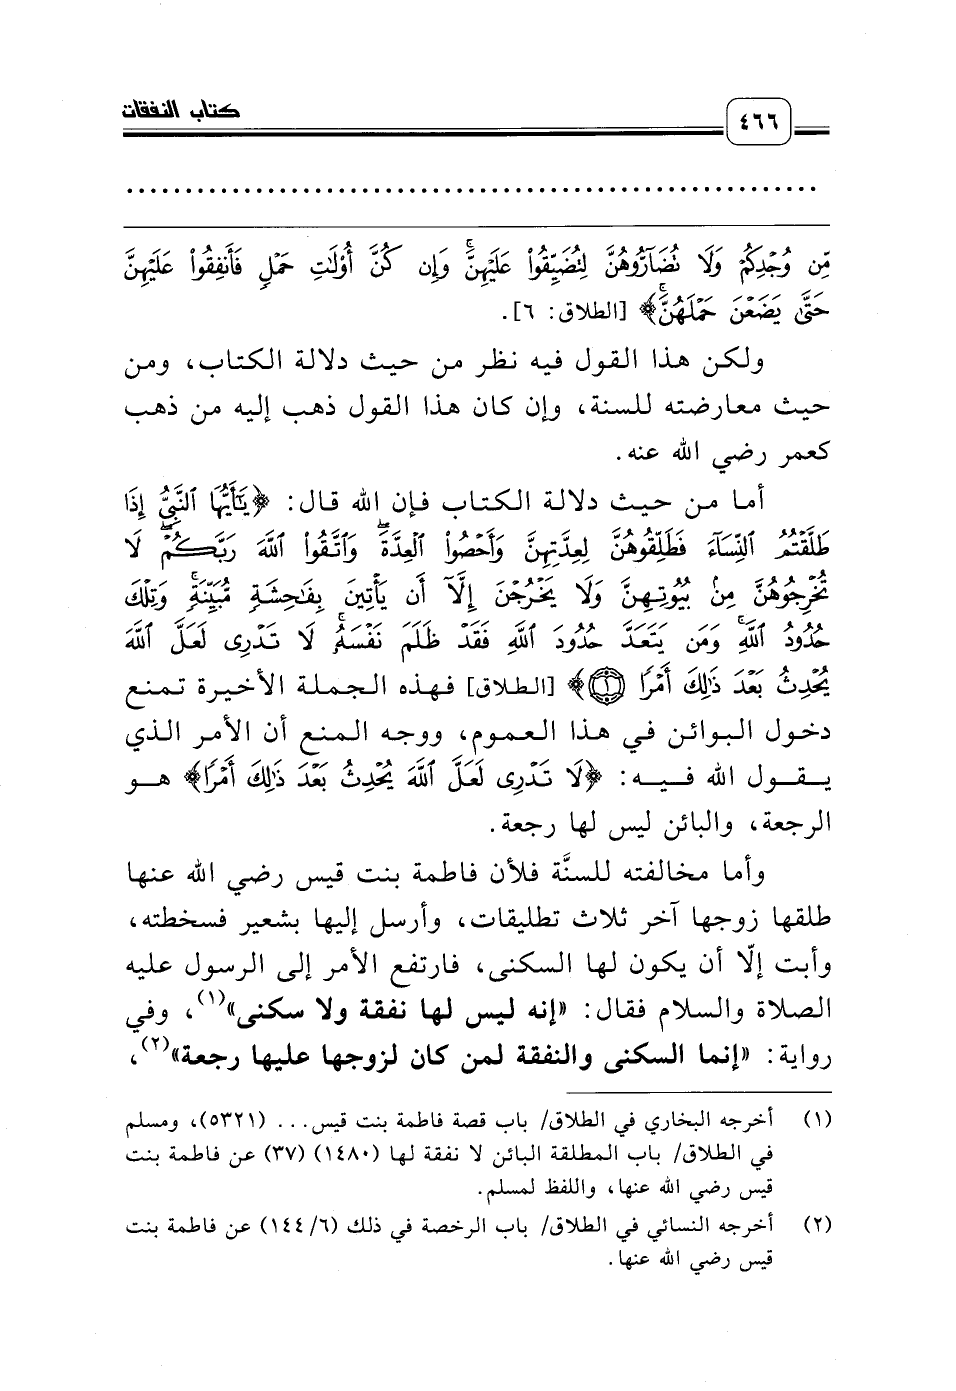 ٤٦٦
كتاب النفقات
......................................................
مِّن وُجْدِكُمْ وَلَا تُضَآرُّوهُنَّ لِتُضَيِّقُوا۟ عَلَيْهِنَّ ۚ وَإِن كُنَّ أُو۟لَٰتِ حَمْلٍ فَأَنفِقُوا۟ عَلَيْهِنَّ
حَتَّىٰ يَضَعْنَ حَمْلَهُنَّ ۚ﴾ [الطلاق: ٦].
ولكن هذا القول فيه نظر من حيث دلالة الكتاب، ومن
حيث معارضته للسنة، وإن كان هذا القول ذهب إليه من ذهب
كعمر رضي الله عنه.
أما من حيث دلالة الكتاب فإن الله قال: ﴿يَٰٓأَيُّهَا ٱلنَّبِىُّ إِذَا
طَلَّقْتُمُ ٱلنِّسَآءَ فَطَلِّقُوهُنَّ لِعِدَّتِهِنَّ وَأَحْصُوا۟ ٱلْعِدَّةَ ۖ وَٱتَّقُوا۟ ٱللَّهَ رَبَّكُمْ ۖ لَا
تُخْرِجُوهُنَّ مِنۢ بُيُوتِهِنَّ وَلَا يَخْرُجْنَ إِلَّآ أَن يَأْتِينَ بِفَٰحِشَةٍ مُّبَيِّنَةٍ ۚ وَتِلْكَ
حُدُودُ ٱللَّهِ ۚ وَمَن يَتَعَدَّ حُدُودَ ٱللَّهِ فَقَدْ ظَلَمَ نَفْسَهُۥ ۚ لَا تَدْرِى لَعَلَّ ٱللَّهَ
يُحْدِثُ بَعْدَ ذَٰلِكَ أَمْرًا ١﴾ [الطلاق] فهذه الجملة الأخيرة تمنع
دخول البوائن في هذا العموم، ووجه المنع أن الأمر الذي
يقول الله فيه: ﴿لَا تَدْرِى لَعَلَّ ٱللَّهَ يُحْدِثُ بَعْدَ ذَٰلِكَ أَمْرًا﴾ هو
الرجعة، والبائن ليس لها رجعة.
وأما مخالفته للسنَّة فلأن فاطمة بنت قيس رضي الله عنها
طلقها زوجها آخر ثلاث تطليقات، وأرسل إليها بشعير فسخطته،
وأبت إلّا أن يكون لها السكنى، فارتفع الأمر إلى الرسول عليه
الصلاة والسلام فقال: «إنه ليس لها نفقة ولا سكنى»(١)، وفي
رواية: «إنما السكنى والنفقة لمن كان لزوجها عليها رجعة»(٢)،
(١) أخرجه البخاري في الطلاق/ باب قصة فاطمة بنت قيس... (٥٣٢١)، ومسلم
في الطلاق/ باب المطلقة البائن لا نفقة لها (١٤٨٠) (٣٧) عن فاطمة بنت
قيس رضي الله عنها، واللفظ لمسلم.
(٢) أخرجه النسائي في الطلاق/ باب الرخصة في ذلك (١٤٤/٦) عن فاطمة بنت
قيس رضي الله عنها.